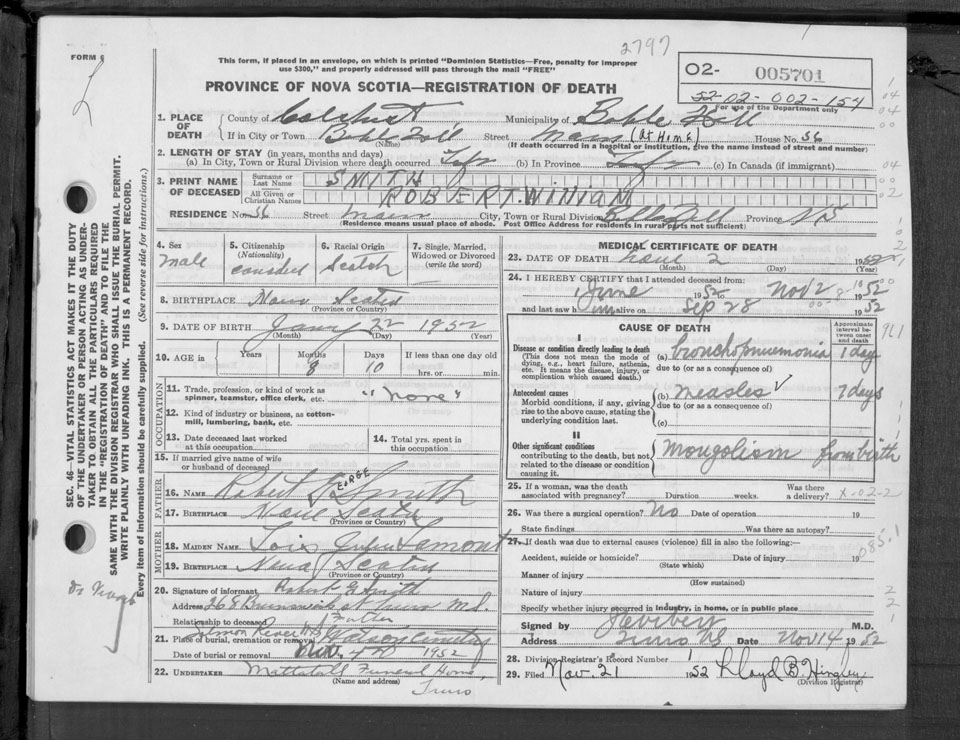 2797
FORM 6
This form, if placed in an envelope, on which is printed "Dominion Statistics—Free, penalty for improper
use $300," and properly addressed will pass through the mail "FREE"
02- 005701
52-02-002-154
For use of the Department only
PROVINCE OF NOVA SCOTIA—REGISTRATION OF DEATH
1. PLACE OF DEATH
County of Colchester Municipality of Bible Hill
If in City or Town Bible Hill Street Main (At Home) House No. 56
(Name) (If death occurred in a hospital or institution, give the name instead of street and number)
2. LENGTH OF STAY (in years, months and days)
(a) In City, Town or Rural Division where death occurred Life (b) In Province Life (c) In Canada (if immigrant)
3. PRINT NAME OF DECEASED
Surname or Last Name SMITH
All Given or Christian Names ROBERT
RESIDENCE No. 56 Street Main City, Town or Rural Division Bible Hill Province N S
(Residence means usual place of abode. Post Office Address for residents in rural parts not sufficient)
4. Sex
male
5. Citizenship
(Nationality)
6. Racial Origin
Scotch
7. Single, Married, Widowed or Divorced
(write the word)
8. BIRTHPLACE Nova Scotia
(Province or Country)
9. DATE OF BIRTH Jany 22 1952
(Month) (Day) (Year)
10. AGE in Years Months Days If less than one day old
8 10 hrs. or min.
OCCUPATION
11. Trade, profession, or kind of work as spinner, teamster, office clerk, etc. "None"
12. Kind of industry or business, as cotton-mill, lumbering, bank, etc.
13. Date deceased last worked at this occupation
14. Total yrs. spent in this occupation
15. If married give name of wife or husband of deceased
FATHER
16. NAME Robert George Smith
17. BIRTHPLACE Nova Scotia
(Province or Country)
MOTHER
18. MAIDEN NAME Lois Lamont
19. BIRTHPLACE Nova Scotia
(Province or Country)
20. Signature of informant Robert G Smith
Address 268 Brunswick st Truro N.S.
Relationship to deceased Father
21. Place of burial, cremation or removal Salmon River N S Cemetery
Date of burial or removal Nov. 4th 1952
22. UNDERTAKER Mattatall Funeral Home,
(Name and address) Truro
MEDICAL CERTIFICATE OF DEATH
23. DATE OF DEATH Nov 2 1952
(Month) (Day) (Year)
24. I HEREBY CERTIFY that I attended deceased from:
June 1952 to Nov 2 1952
and last saw h im alive on Sep 28 1952
CAUSE OF DEATH
Approximate interval between onset and death
I
Disease or condition directly leading to death
(This does not mean the mode of dying, e.g., heart failure, asthenia, etc. It means the disease, injury, or complication which caused death.)
(a) bronchopneumonia 1 day
due to (or as a consequence of)
Antecedent causes
Morbid conditions, if any, giving rise to the above cause, stating the underlying condition last.
(b) measles 7 days
due to (or as a consequence of)
(c)
II
Other significant conditions
contributing to the death, but not related to the disease or condition causing it.
Mongolism from birth
25. If a woman, was the death associated with pregnancy? Duration weeks. Was there a delivery? X-02-2
26. Was there a surgical operation? No Date of operation 19
State findings Was there an autopsy?
27. If death was due to external causes (violence) fill in also the following:—
Accident, suicide or homicide? Date of injury 19
(State which)
Manner of injury
(How sustained)
Nature of injury
Specify whether injury occurred in Industry, in home, or in public place
085.1
Signed by M.D.
Address Truro NS Date Nov 14 1952
28. Division Registrar's Record Number
29. Filed Nov. 21 1952 Lloyd B. Hingley
(Division Registrar)
SEC. 46—VITAL STATISTICS ACT MAKES IT THE DUTY
OF THE UNDERTAKER OR PERSON ACTING AS UNDER-
TAKER TO OBTAIN ALL THE PARTICULARS REQUIRED
IN THE "REGISTRATION OF DEATH" AND TO FILE THE
SAME WITH THE DIVISION REGISTRAR WHO SHALL ISSUE THE BURIAL PERMIT.
WRITE PLAINLY WITH UNFADING INK. THIS IS A PERMANENT RECORD.
Every item of information should be carefully supplied. (See reverse side for instructions.)